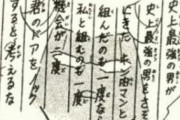 史上最強が
史上最強の男をさそ
にきた
マンと
組んだのも一度なら
私と組むのも一度
機会が二度
君のドアをノック
すると考えるな